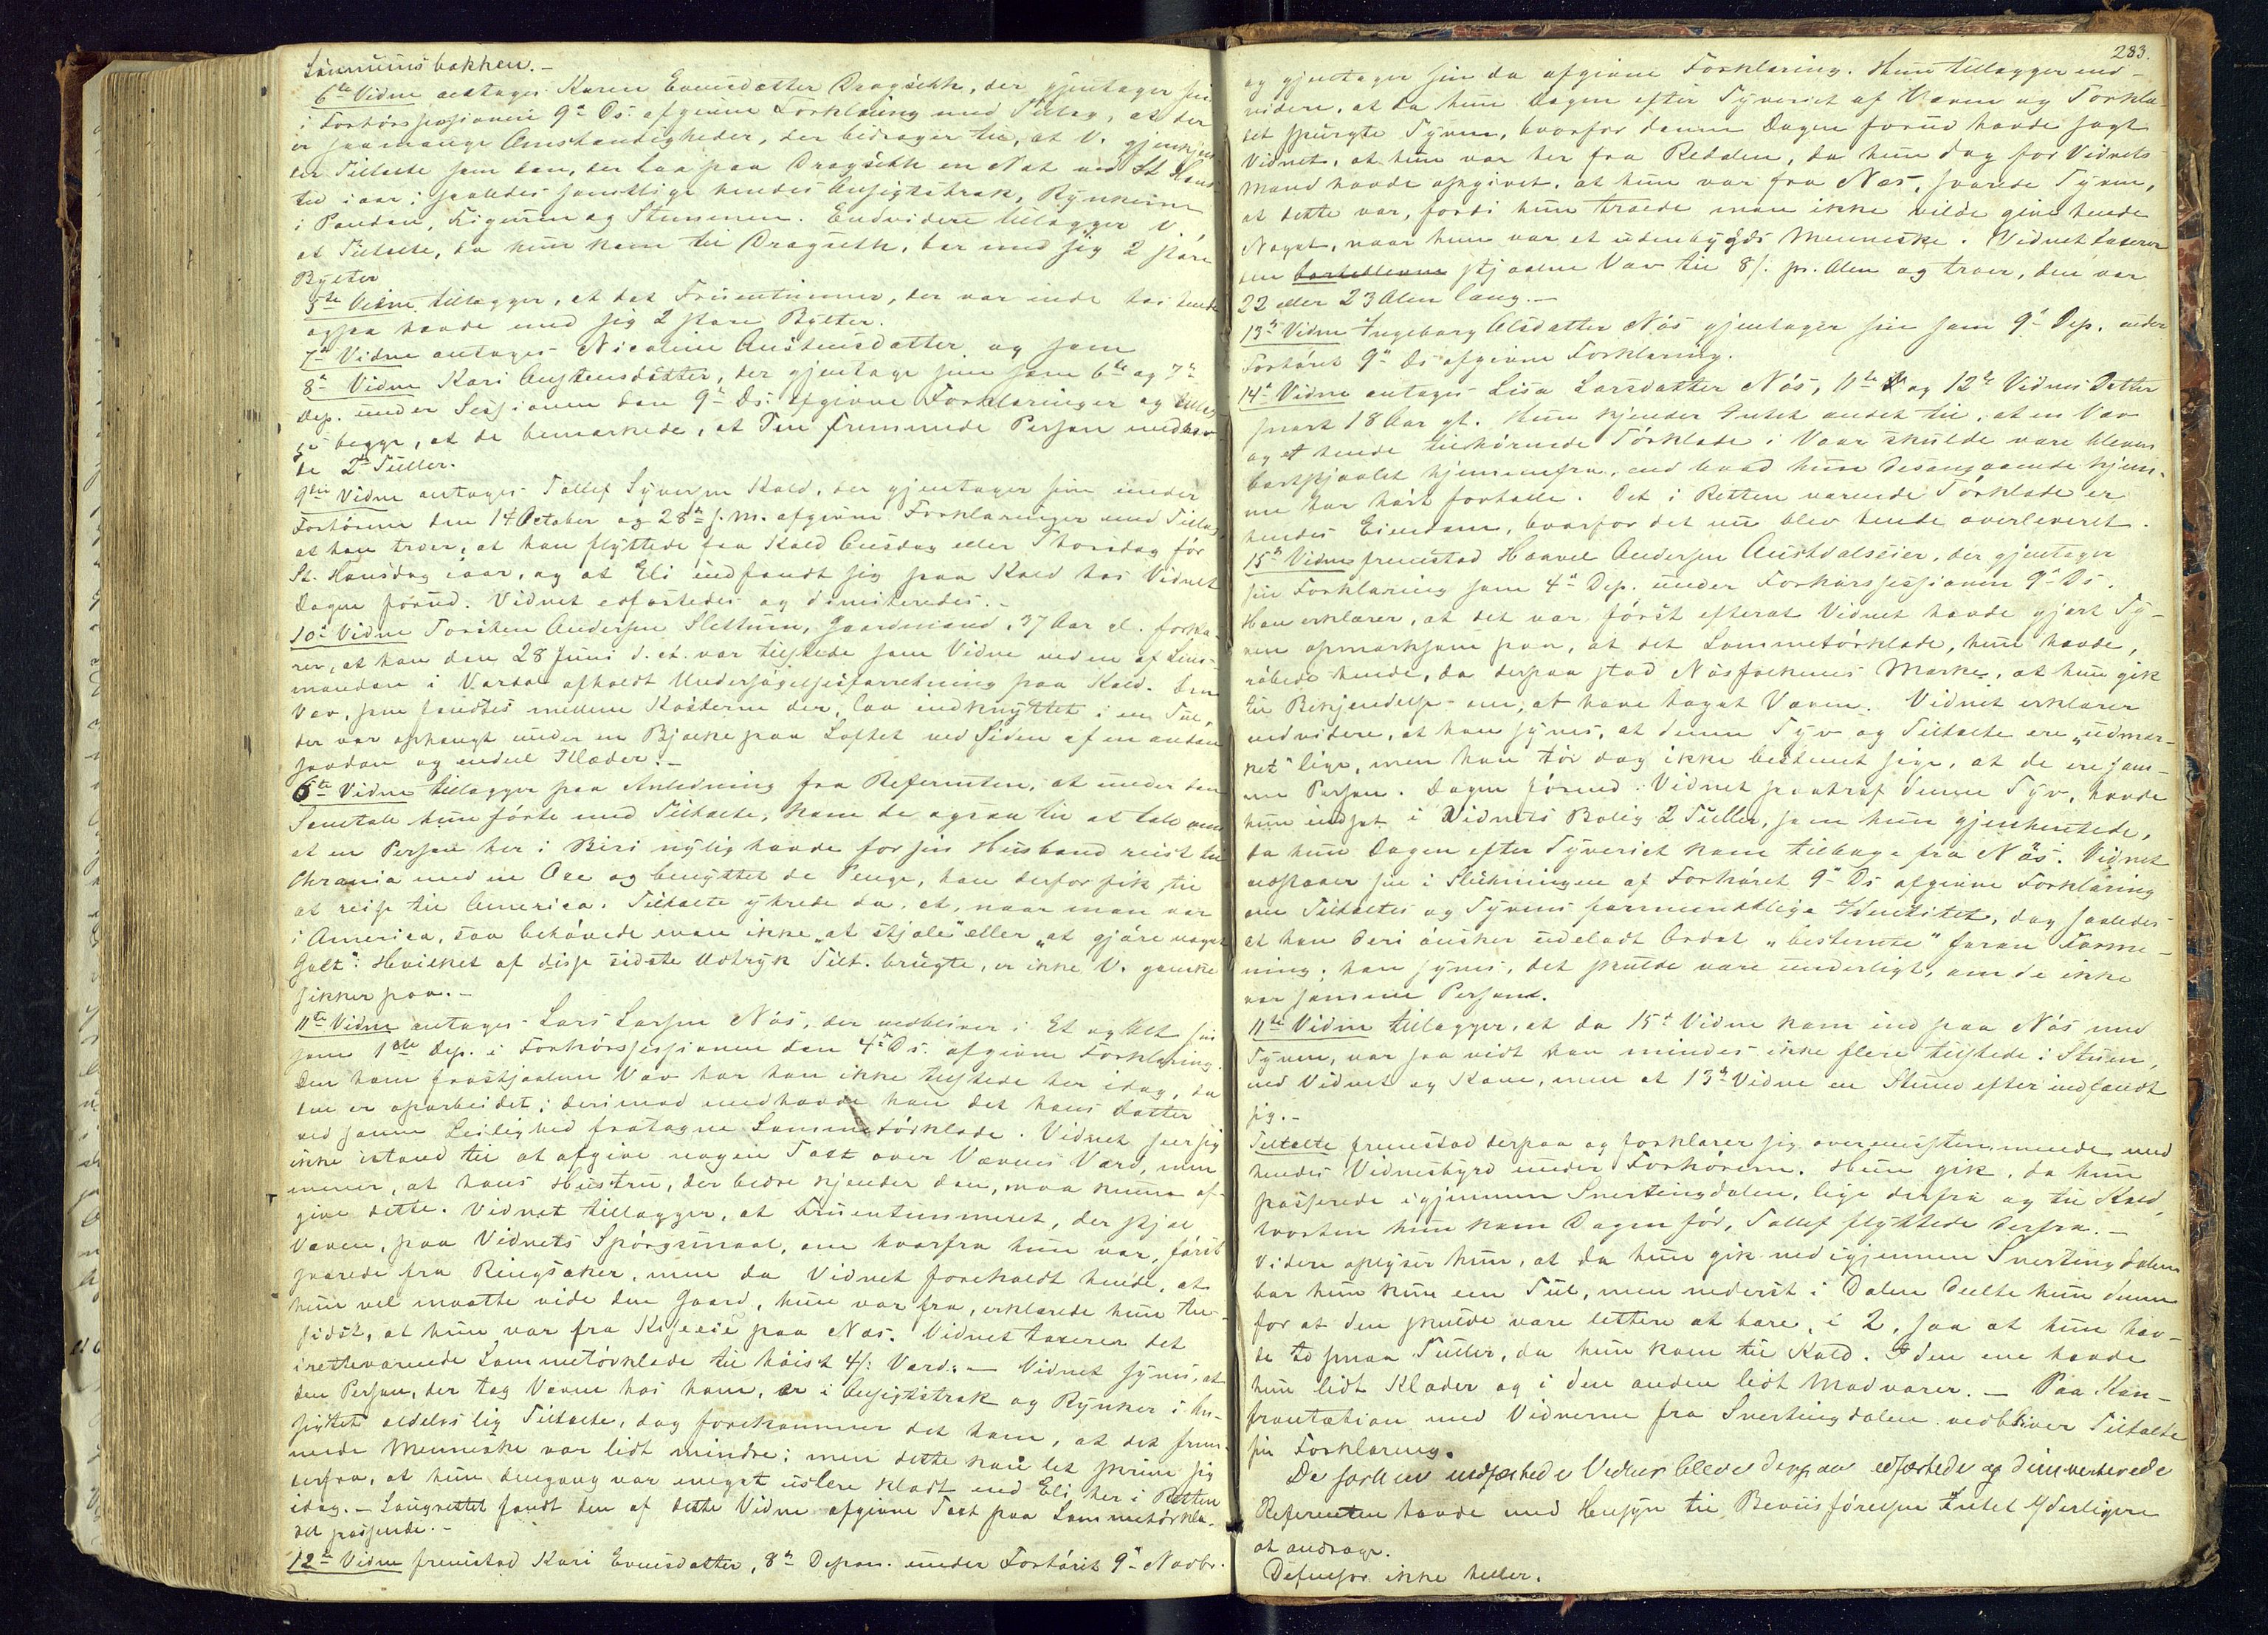 Lönnumsbakken.-
6te Vidne antages Karen Evensdatter Dragseth, der gjentager sin
i Forhörssessionen 9de Ds. afgivne Forklaring med Tillæg, at der
er saamange Omstændigheder, der bidrager til, at V. gjenkjen-
der Tiltalte som den, der laa paa Dragseth en Nat ved St Hans-
tid iaar; saaledes samtlige hendes Ansigtstræk, Rynkerne
i Panden, Figuren og Stemmen. Endvidere tillægger V,
at Tiltalte, da hun kom til Dragseth, bar med sig 2 store
Bylter
5te Vidne tillægger, at det Fruentimmer, der var inde hos hende
ogsaa havde med sig 2 store Bylter.
7de Vidne antages Nicoline Austensdatter og som
8de Vidne Kari Austensdatter, der gjentage sine som 6te og 7de
Dep. under Sessionen den 9de Ds: afgivne Forklaringer og tillæg-
ge begge, at de bemærkede, at Den fremmede Person medhav-
de 2de Tuller.
9de Vidne antages Tollef Syversen Kald, der gjentager sine under
Forhörene den 14 October og 28de f. M. afgivne Forklaringer med Tillæg,
at han troer, at han flyttede fra Kald Onsdag eller Thorsdag för
St. Hansdag iaar, og at Eli indfandt sig paa Kald hos Vidnet
Dagen forud. Vidnet edfæstedes og dimitteredes.-
10de Vidne Torsten Andersen Slettum, Gaardmand, 37 Aar gl. forkla-
rer, at han den 28 Juni d. A. var tilstede som Vidne ved en af Lens-
manden i Vardal afholdt Undersögelsesforretning paa Kald. Den
Væv, som fandtes mellem Kosterne der, laa indknyttet i en Tul,
der var ophængt under en Bjælke paa Loftet ved Siden af en anden
saadan og endeel Klæder.-
6te Vidne tillægger paa Anledning fra Referenten, at under den
Samtale hun förte med Tiltalte, kom de ogsaa til at tale om
at en Person her i Biri nylig havde for sin Husbond reist til
Chrania med en Oxe og benyttet de Penge, han derfor fik til
at reise til America. Tiltalte ytrede da, at, naar man var
i America, saa behövede man ikke "at stjæle" eller "at gjöre noget
Galt": Hvilket af disse sidste Udtryk Tilt. brugte, er ikke V. ganske
sikker paa.-
11te Vidne antages Lars Larsen Nös, der vedbliver i Et og Alt sin
som 1ste Dep. i Forhörssessionen den 4de Ds. afgivne Forklaring.
Den ham frastjaalne Væv har han ikke tilstede her idag, da
den er oparbeidet; derimod medhavde han det hans Datter
ved samme Leilighed fratagne Lommetörklæde. Vidnet seer sig
ikke istand til at afgive nogen Taxt over Vævens Værd, men
mener, at hans Hustru, der bedre kjender den, maa kunne af-
give dette. Vidnet tillægger, at Fruentimmeret, der stjal
Væven, paa Vidnets Spörgsmaal, om hvorfra hun var, först
svarede fra Ringsaker, men da Vidnet foreholdt hende, at
hun vel maatte vide den Gaard, hun var fra, erklærede hun til-
sidst, at hun var fra Kiseeie paa Næs. Vidnet taxerer det
iretteværende Lommetörklæde til höist 4/: Værd.- Vidnet synes, at
den Person, der tog Væven hos ham, er i Ansigtstræk og Rynker i An-
sigtet aldeles lig Tiltalte, dog forekommer det ham, at det frem-
mede Menneske var lidt mindre; men dette kan let skrive sig
derfra, at hun dengang var meget uslere klædt end Eli her i Retten
idag.- Laugrettet fandt den af dette Vidne afgivne Taxt paa Lommetörklæ-
det passende.-
12te Vidne fremstod Kari Evensdatter, 8de Depon. under Forhöret 9de Novbr.
283.
og gjentager sin da afgivne Forklaring. Hun tillægger end-
videre, at da hun Dagen efter Tyveriet af Væven og Törklæ-
det spurgte Tyven, hvorfor denne Dagen forud havde sagt
Vidnet, at hun var her fra Redalen, da hun dog for Vidnets
Mand havde opgivet, at hun var fra Næs, svarede Tyven,
at dette var, fordi hun troede man ikke vilde give hende
Noget, naar hun var et udenbygds Menneske. Vidnet taxerer
den stjaalne Væv til 8/: pr. Alen og troer, den var
22 eller 23 Alen lang.-
13de Vidne Ingeborg Olsdatter Nös gjentager sin som 9de Dep. under
Forhöret 9de Ds afgivne Forklaring.
14de Vidne antages Lisa Larsdatter Nös, 11te og 12te Vidnes Datter
snart 18 Aar gl. Hun kjender Intet andet til, at en Væv
og et hende tilhörende Törklæde i Vaar skulde være bleven
bortstjaalet hjemmefra, end hvad hun desangaaende hjem-
me har hört fortælle. Det i Retten værende Törklæde er
hendes Eiendom, hvorfor det nu blev hende overleveret.
15de Vidne fremstod Haavel Andersen Austdalseier, der gjentager
sin Forklaring som 4de Dep. under Forhörssessionen 9de Ds.
Han erklærer, at det var först efterat Vidnet havde gjort Ty-
ven opmærksom paa, at det Lommetörklæde, hun havde,
röbede hende, da derpaa stod Nösfolkenes Mærke, at hun gik
til Bekjendelse om, at have taget Væven. Vidnet erklærer
endvidere, at han synes, at denne Tyv og Tiltalte ere "udmær-
ket" lige, men han tör dog ikke bestemt sige, at de ere sam-
me Person. Dagen förend Vidnet paatraf denne Tyv, havde
hun indsat i Vidnets Bolig 2 Tuller, som hun gjenhentede,
da hun Dagen efter Tyveriet kom tilbage fra Nös. Vidnet
vedtager sin i Slutningen af Forhöret 9de Ds afgivne Forklaring
om Tiltaltes og Tyvens formentlige Identitet, dog saaledes
at han deri önsker udeladt Ordet "bestemte" foran Forme-
ning; han synes, det skulde være underligt, om de ikke
var samme Person.
11te Vidne tillægger, at da 15de Vidne kom ind paa Nös med
Tyven, var saa vidt han mindes ikke flere tilstede i Stuen,
end Vidnet og Kone, men at 13de Vidne en Stund efter indfandt
sig.-
Tiltalte fremstod derpaa og forklarer sig overensstemmende med
hendes Vidnesbyrd under Forhörene. Hun gik, da hun
passerede igjennem Snertingdalen, lige derfra og til Kald,
hvorhen hun kom Dagen för, Tollef flyttede derfra.-
Videre oplyser hun, at da hun gik ned igjennem Snertingdalen
bar hun kun een Tul, men nederst i Dalen deelte hun denne
for at den skulde være lettere at bære, i 2, saa at hun hav-
de to smaa Tuller, da hun kom til Kald. I den ene havde
hun lidt Klæder og i den anden lidt Madvarer.- Paa Kon-
frontation med Vidnerne fra Snertingdalen vedbliver Tiltalte
sin Forklaring.
De forhen uedfæstede Vidner bleve derpaa edfæstede og dimitterede
Referenten havde med Hensyn til Beviisförelsen Intet Yderligere
at andrage.
Defensor ikke heller.